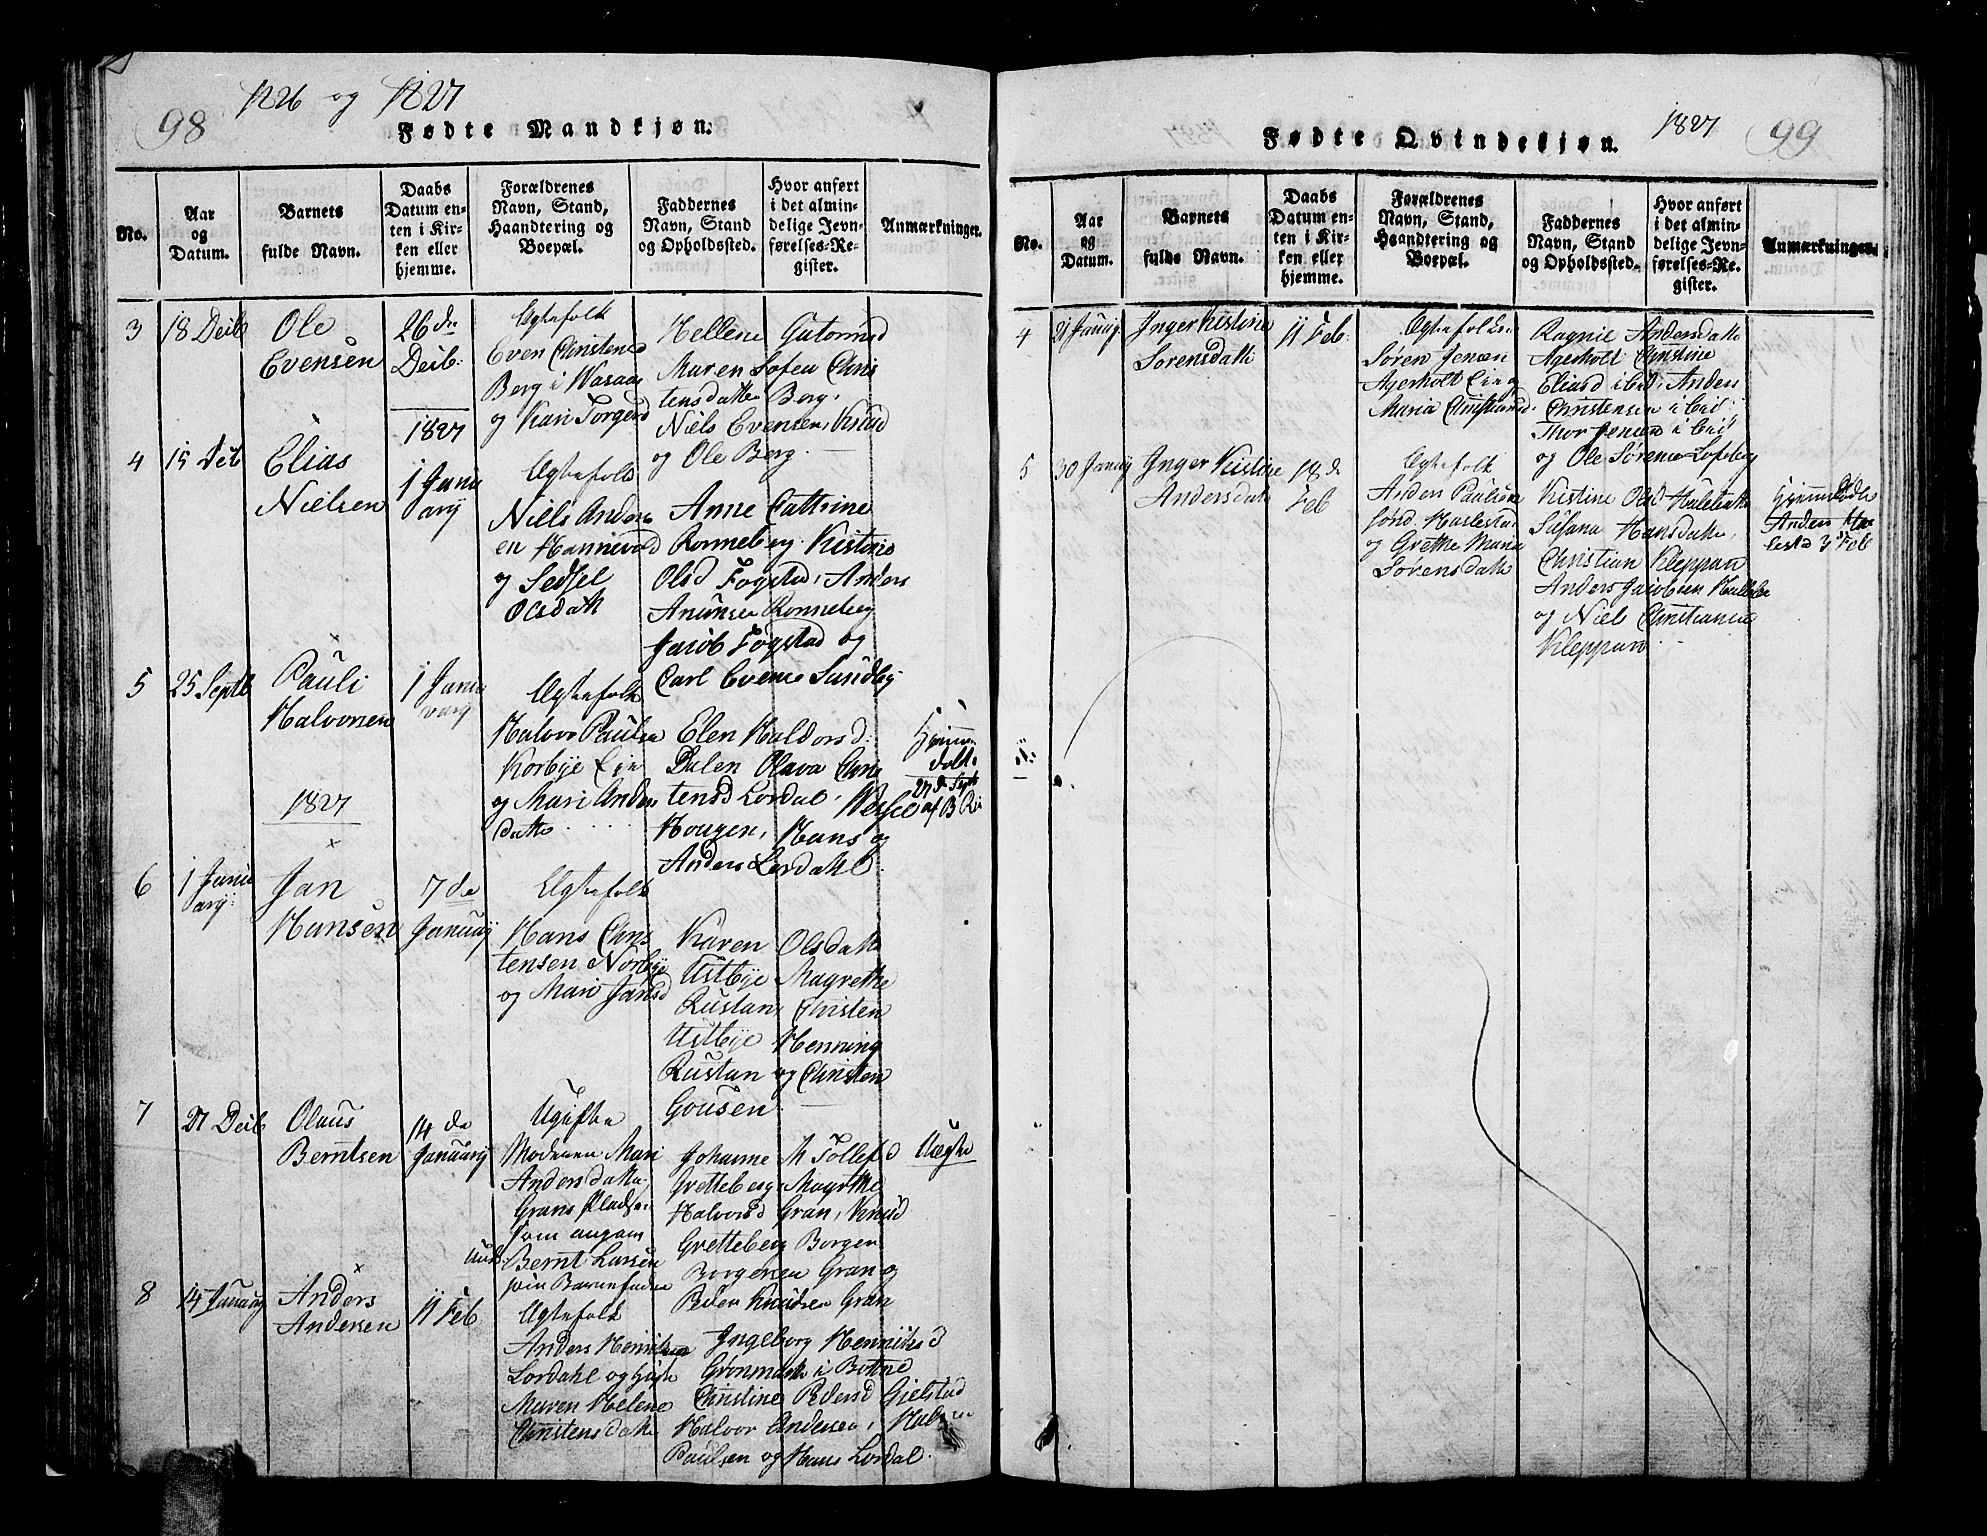 98
1826 og 1827
Fødte Mandkjøn.
No.
Aar
og
Datum.
Barnets
fulde Navn.
Daabs
Datum en-
ten i Kir-
ken eller
hjemme.
Forældrenes
Navn, Stand,
Haandtering og
Boepæl.
Faddernes
Navn, Stand
og Opholdssted.
Hvor anført
i det almin-
delige Jevn-
førelses-Re-
gister.
Anmærkninger.
3
18 Decb
Ole
Evensen
26 de
Decb:
Egtefolk
Even Christens
Berg i Wasaas
og Kari Torgersd
Hellene Gutormsd
Maren Sofea Chris
tensdatter Berg,
Niels Evensen, Knud
og Ole Berg.
1827
4
15 Decb
Elias
Nielsen
1 Janu
ary
Egtefolk
Niels Anders
en Hannevold
og Sedsel
Olsdatt
Anne Cattrine
Ronneberg Kistine
Olsd Fogstad, Anders
Anunsen Ronneberg
Jacob Fogstad og
Carl Evens Sundby
5
25 Septb
Pauli
Halvorsen
1 Janu
vary
Egtefolk
Halvor Paulsen
Korbye Eie
og Mari Anders
datter
Elen Haldorsd:
Dalen Olava Chris
tensd Lordal,
Hougen, Hans og
Anders Lordahl
Hjemme
døbt
27 d Septb
af B
1827
6
1 Janu
ary:
Jan
Hansen
7 de
January
Egtefolk
Hans Chris
tensen Norbye
og Mari Jansd
Karen Olsdatt
Uitbye Magrethe
Rustan, Christen
Uitbye Henning
Rustan og Christen
Gousen
7
27 Decb
Olaus
Berntsen
14 de
January
Ugifte
Moderen Mari
Andersdatter
Grans Pladse
som angam
Bernt Larsen
som Barnefader
Johanne M Tollefsd
Gretteberg Magrethe
Halvorsd Gran, Knud
Gretteberg Borger
Borgersen Gran og
Peder Knudsen Gran
Uægte
8
14 January
Anders
Andersen
11 Feb
Egtefolk
Anders Henriksen
Lordahl og
Maren Helene
Christensdatter
Ingeborg Henriksd
Gronmark i Botne
Christine Pedersd Gielstad
Halvor Andersen,
Paulsen og Hans Lordal.
1827
99
Fødte Qvindekjøn.
No.
Aar
og
Datum.
Barnets
fulde Navn.
Daabs
Datum en-
ten i Kir-
ken eller
hjemme.
Forældrenes
Navn, Stand,
Haandtering og
Boepæl.
Faddernes
Navn, Stand
og Opholdssted.
Hvor anført
i det almin-
delige Jevn-
førelses-Re-
gister.
Anmærkninger.
4
21 Januay
Inger Kistine
Sorensdatt
11 Feb:
Egtefolk
Søren Jensen
Agerholt Eie og
Maria Christiansd.
Ragnil Andersdatt
Agerholt Christine
Eliasd ibid, Anders
Christensen ibid
Thor Jensen ibid
og Ole Sørensen
5
30 Januay
Inger Kistine
Andersdatt
18 d
Feb
Egtefolk
Anders Paulsen
sønd. Haslestad
og Grethe Maria
Sørensdatt
Kistine Olsd
Susana Hansdatter,
Christian Kleppan
Anders Jacobsen
og Niels Christiansen
Kleppan
Hjemmedøbt
Anders Ha
lestad 3 Feb